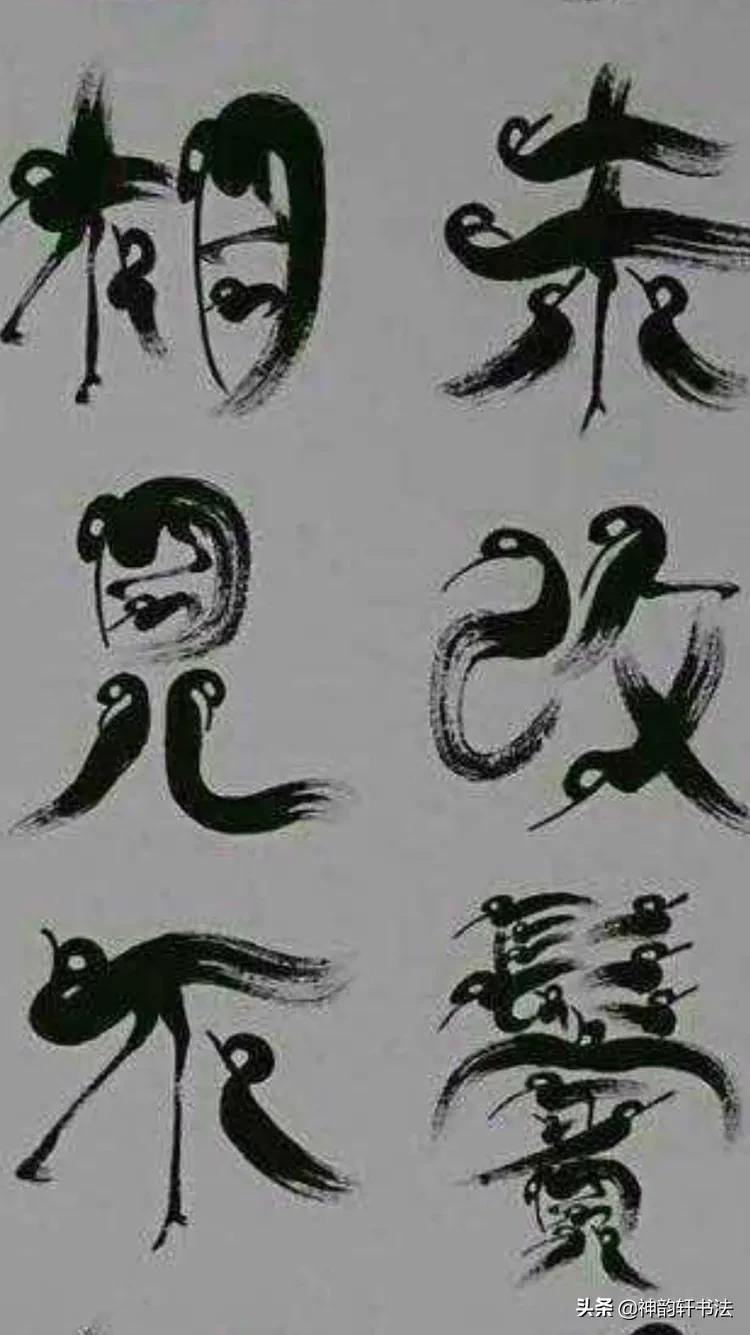 未改鬢
相見不
头条 @神韵轩书法